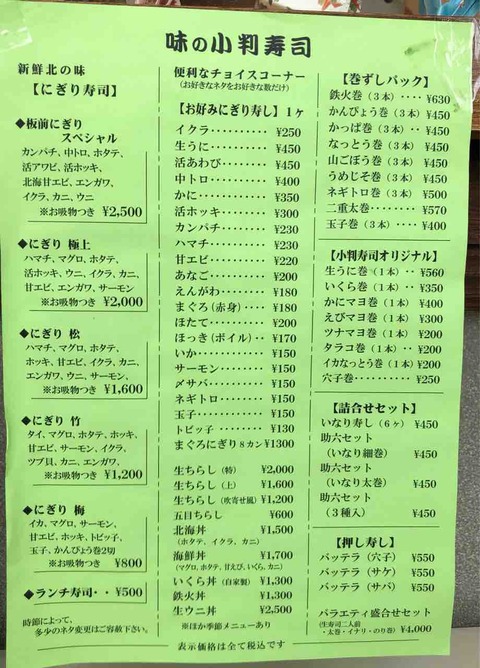 味の小判寿司
新鮮北の味
【にぎり寿司】
◆板前にぎり
スペシャル
カンパチ、中トロ、ホタテ、
活アワビ、活ホッキ、
北海甘エビ、エンガワ、
イクラ、カニ、ウニ
※お吸物つき ¥2,500
◆にぎり 極上
ハマチ、マグロ、ホタテ、
活ホッキ、ウニ、イクラ、カニ、
甘エビ、エンガワ、サーモン
※お吸物つき ¥2,000
◆にぎり 松
ハマチ、マグロ、ホタテ、
ホッキ、甘エビ、イクラ、カニ、
エンガワ、ウニ、サーモン、
※お吸物つき ¥1,600
◆にぎり 竹
タイ、マグロ、ホタテ、ホッキ、
甘エビ、サーモン、イクラ、
ツブ貝、カニ、エンガワ、
※お吸物つき ¥1,200
◆にぎり 梅
イカ、マグロ、サーモン、
甘エビ、ホッキ、トビッ子、
玉子、かんぴょう巻2切
※お吸物つき ¥800
◆ランチ寿司・・¥500
時節によって、
多少のネタ変更はご容赦下さい。
便利なチョイスコーナー
(お好きなネタをお好きな数だけ)
【お好みにぎり寿し】1ヶ
イクラ・・・・・・・・・・ ¥250
生うに・・・・・・・・・・ ¥450
活あわび・・・・・・・・ ¥450
中トロ・・・・・・・・・・ ¥400
かに・・・・・・・・・・・・ ¥350
活ホッキ・・・・・・・・ ¥300
カンパチ・・・・・・・・ ¥230
ハマチ・・・・・・・・・・ ¥230
甘エビ・・・・・・・・・・ ¥220
あなご・・・・・・・・・・ ¥200
えんがわ・・・・・・・・ ¥180
まぐろ(赤身)・・・・ ¥180
ほたて・・・・・・・・・・ ¥200
ほっき(ボイル)・・ ¥170
いか・・・・・・・・・・・・ ¥150
サーモン・・・・・・・・ ¥150
〆サバ・・・・・・・・・・ ¥150
ネギトロ・・・・・・・・ ¥150
玉子・・・・・・・・・・・・ ¥150
トビッ子・・・・・・・・ ¥130
まぐろにぎり8カン¥1300
生ちらし(特) ¥2,000
生ちらし(上) ¥1,600
生ちらし(吹寄せ風) ¥1,200
五目ちらし ¥600
北海丼 ¥1,500
(ホタテ、イクラ、カニ)
海鮮丼 ¥1,700
(マグロ、ホタテ、甘えび、いくら、カニ)
いくら丼(自家製) ¥1,300
鉄火丼 ¥1,300
生ウニ丼 ¥2,500
※ほか季節メニューあり
【巻ずしパック】
鉄火巻(3本)・・・・ ¥630
かんぴょう巻(3本) ¥450
かっぱ巻(3本)・・ ¥450
なっとう巻(3本) ¥450
山ごぼう巻(3本) ¥450
うめじそ巻(3本) ¥450
ネギトロ巻(3本) ¥500
二重太巻・・・・・・・・ ¥570
玉子巻(3本)・・・・ ¥400
【小判寿司オリジナル】
生うに巻(1本)・・ ¥560
いくら巻(1本)・・ ¥350
かにマヨ巻(1本) ¥400
えびマヨ巻(1本) ¥300
ツナマヨ巻(1本) ¥200
タラコ巻(1本)・・ ¥200
イカなっとう巻(1本) ¥200
穴子巻・・・・・・・・・・ ¥250
【詰合せセット】
いなり寿し(6ヶ) ¥450
助六セット
(いなり細巻) ¥450
助六セット
(いなり太巻) ¥450
助六セット
(3種入) ¥450
【押し寿し】
バッテラ(穴子) ¥550
バッテラ(サケ) ¥550
バッテラ(サバ) ¥550
バラエティ盛合せセット
(生寿司二人前
・太巻・イナリ・のり巻) ¥4,000
表示価格は全て税込です